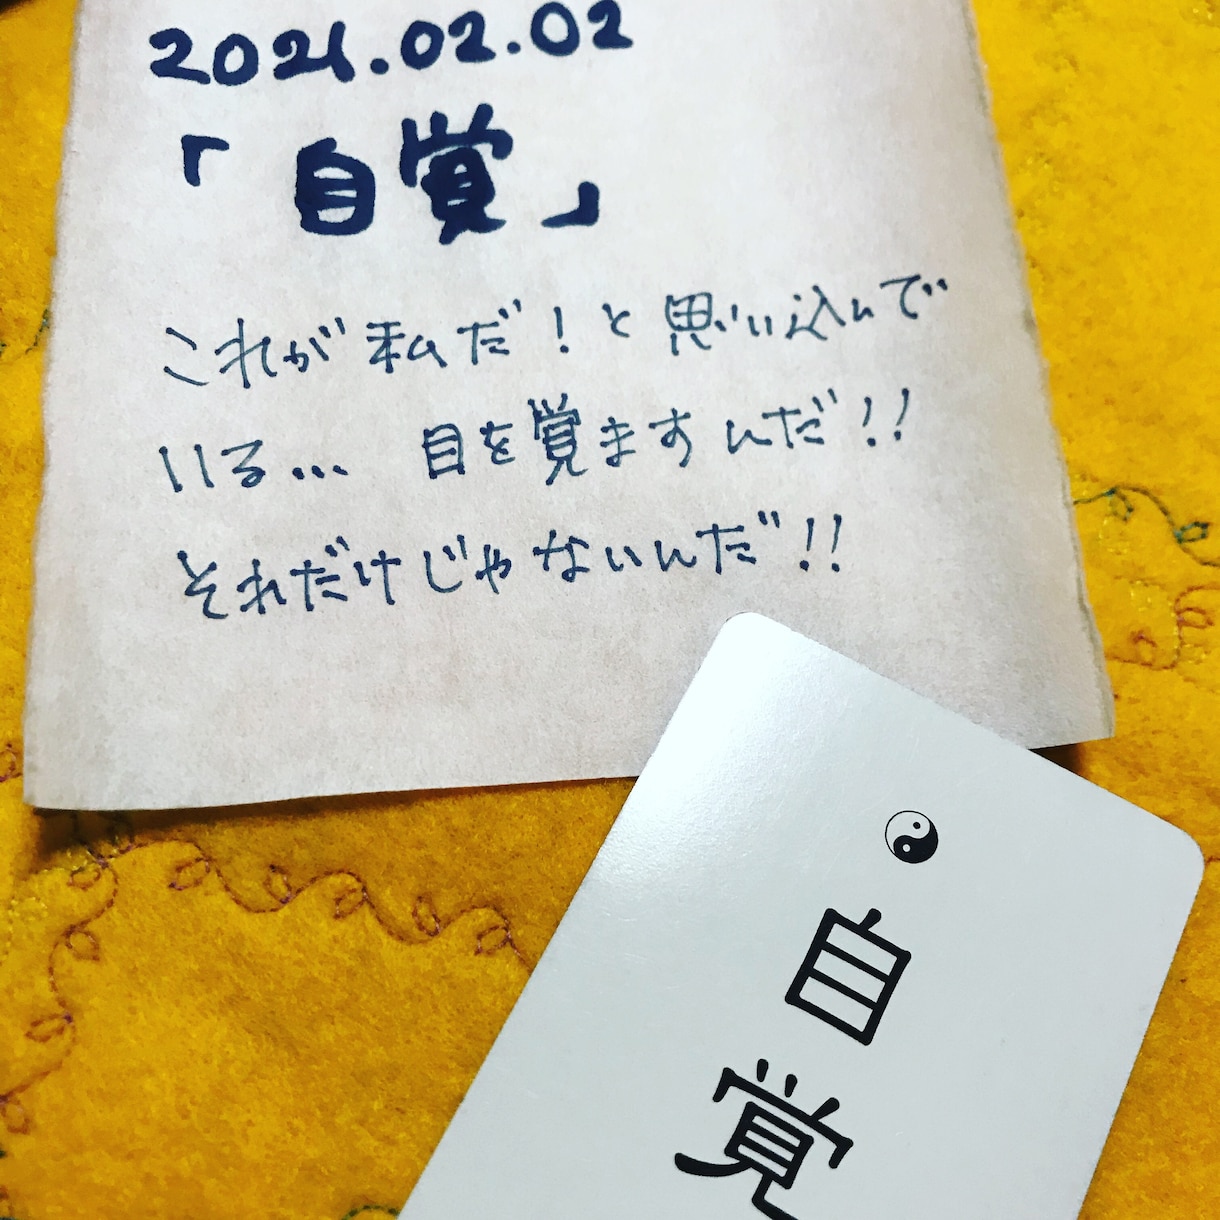 2021.02.02
「自覚」
これが私だ！と思い込んで
いる... 目を覚ますんだ!!
それだけじゃないんだ!!
自覚